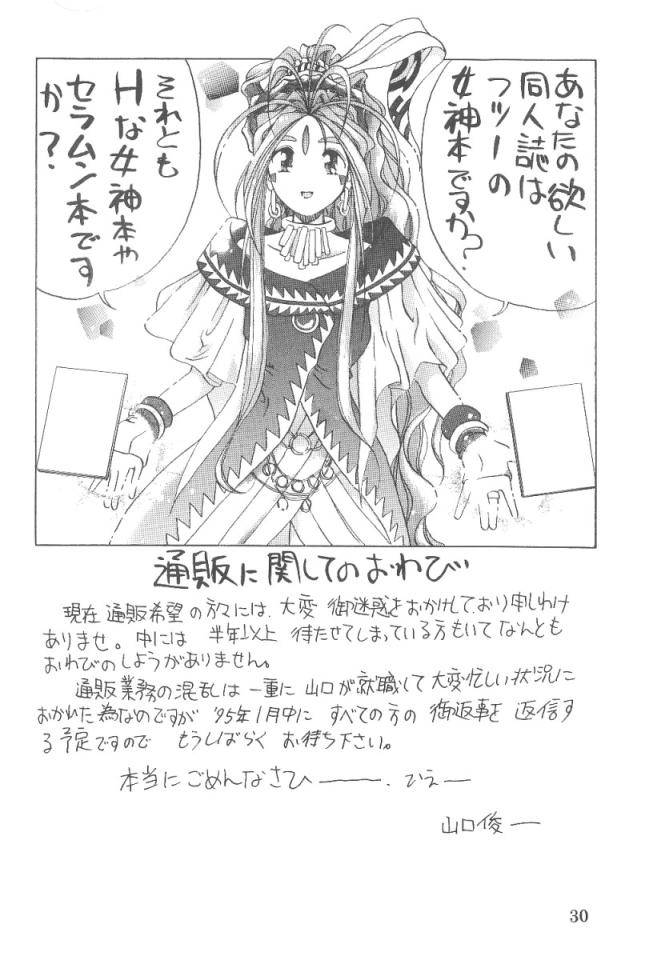 あなたの欲しい
同人誌は
フツーの
女神本ですか？
それとも
Hな女神本や
セラムン本です
か？
通販に関してのおわび
現在通販希望の方々には、大変御迷惑をおかけしており申しわけ
ありませ。中には半年以上待たせてしまっている方もいてなんとも
おわびのしようがありません。
通販業務の混乱は一重に山口が就職して大変忙しい状況に
おかれた為なのですが'95年1月中にすべての方の御返事を返信す
る予定ですのでもうしばらくお待ち下さい。
本当にごめんなさひ――――.ひえ―
山口俊一
30